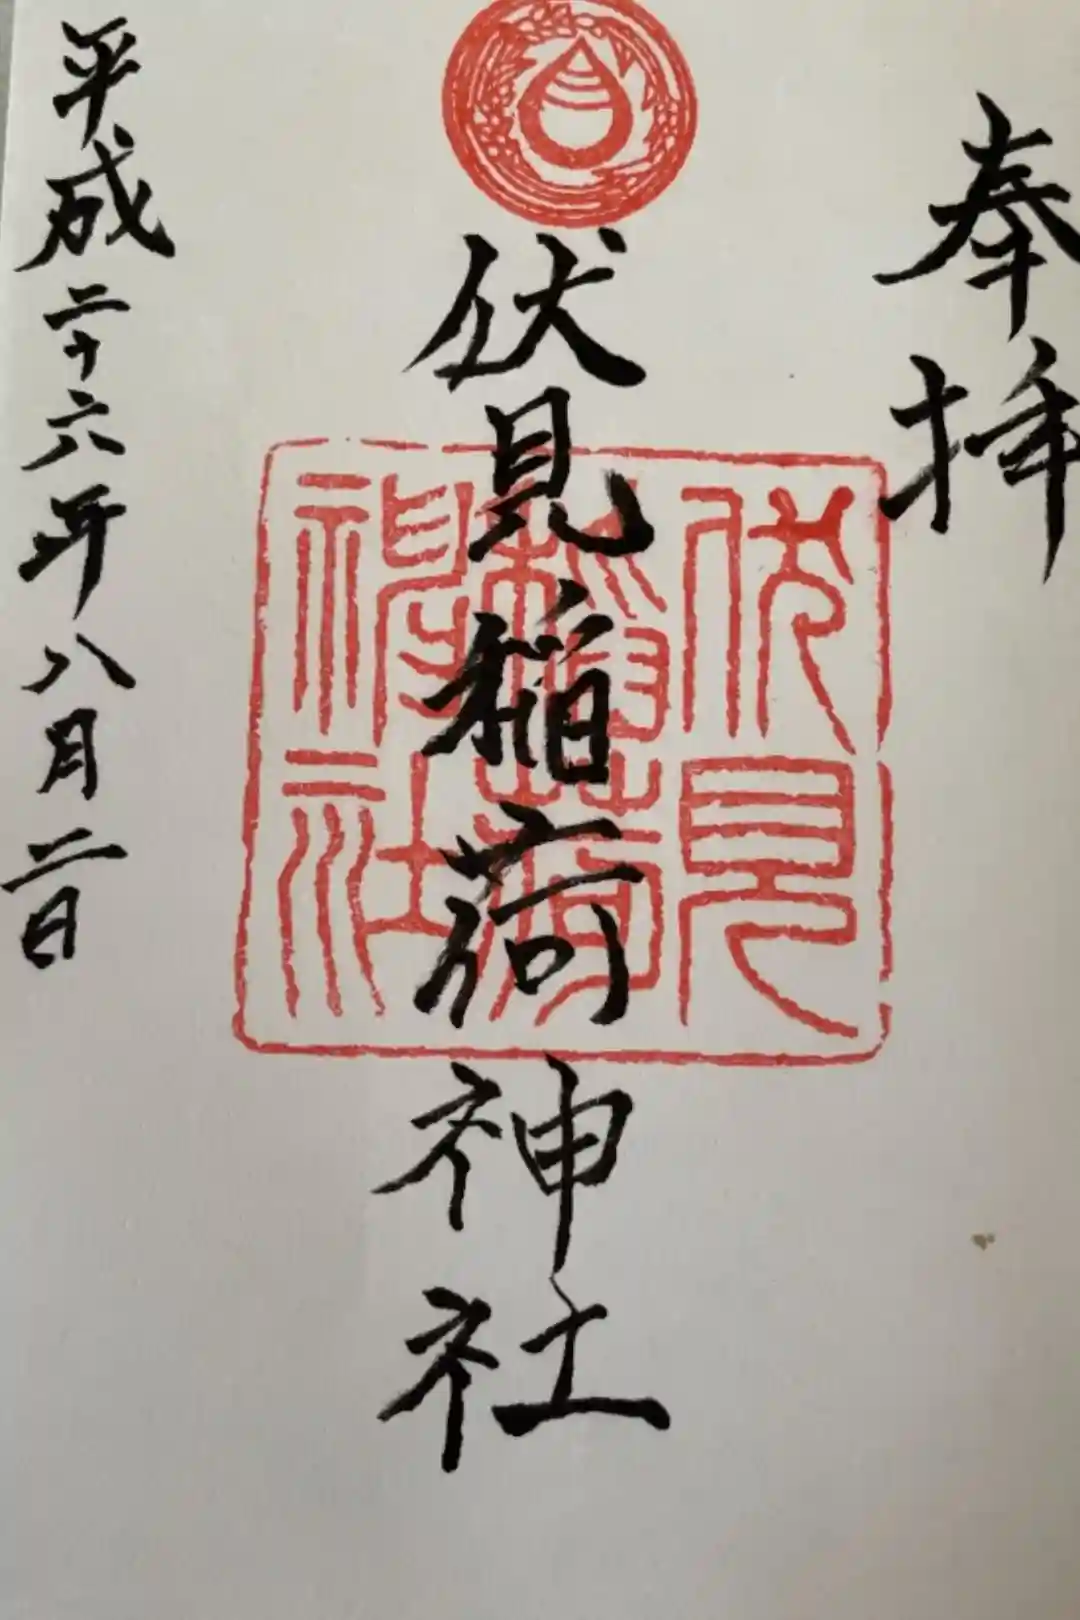 奉拝
伏見稲荷神社
伏見
稲荷
神社
平成二十六年八月二日